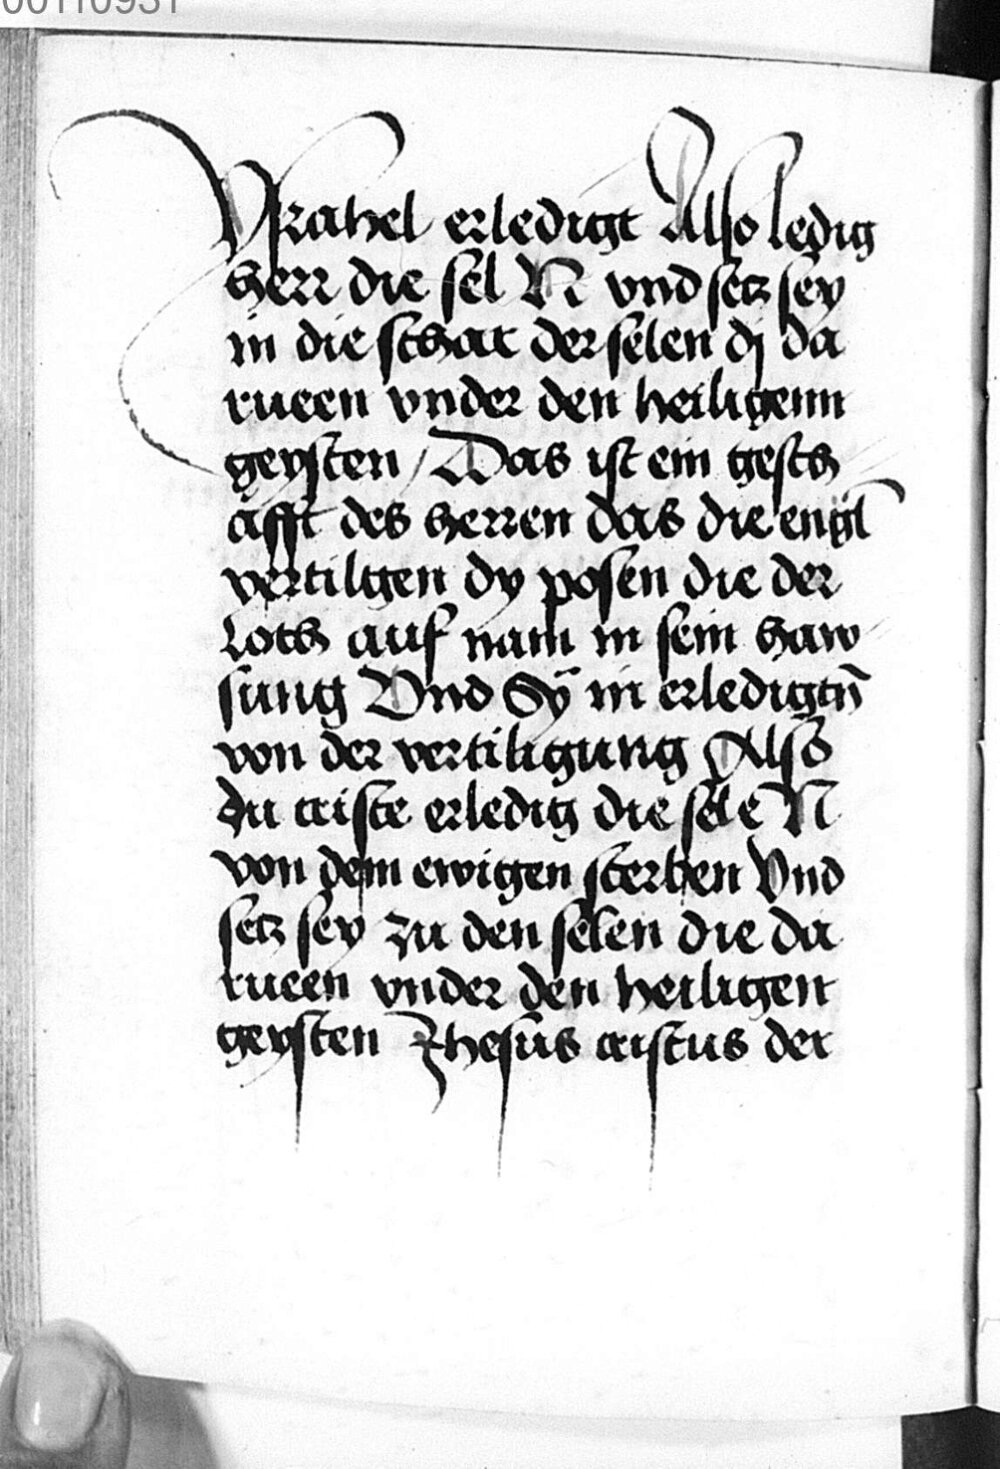 00110931
Ysrahel erledigt Also ledig
herr die sel N vnd setz sey
in die schar der selen dj da
rueen vnder den heiligenn
geysten / Das ist ein gesch
äfft des herren das die engl
vertiligen dy posen die der
loth auf nam in sein haw
sung Vnd Sÿ in erledigtn̄
von der vertiligung Also
du criste erledig die sele N
von dem ewigen sterben Vnd
setz sey zu den selen die da
rueen vnder den heiligen
geysten Jhesus cristus der